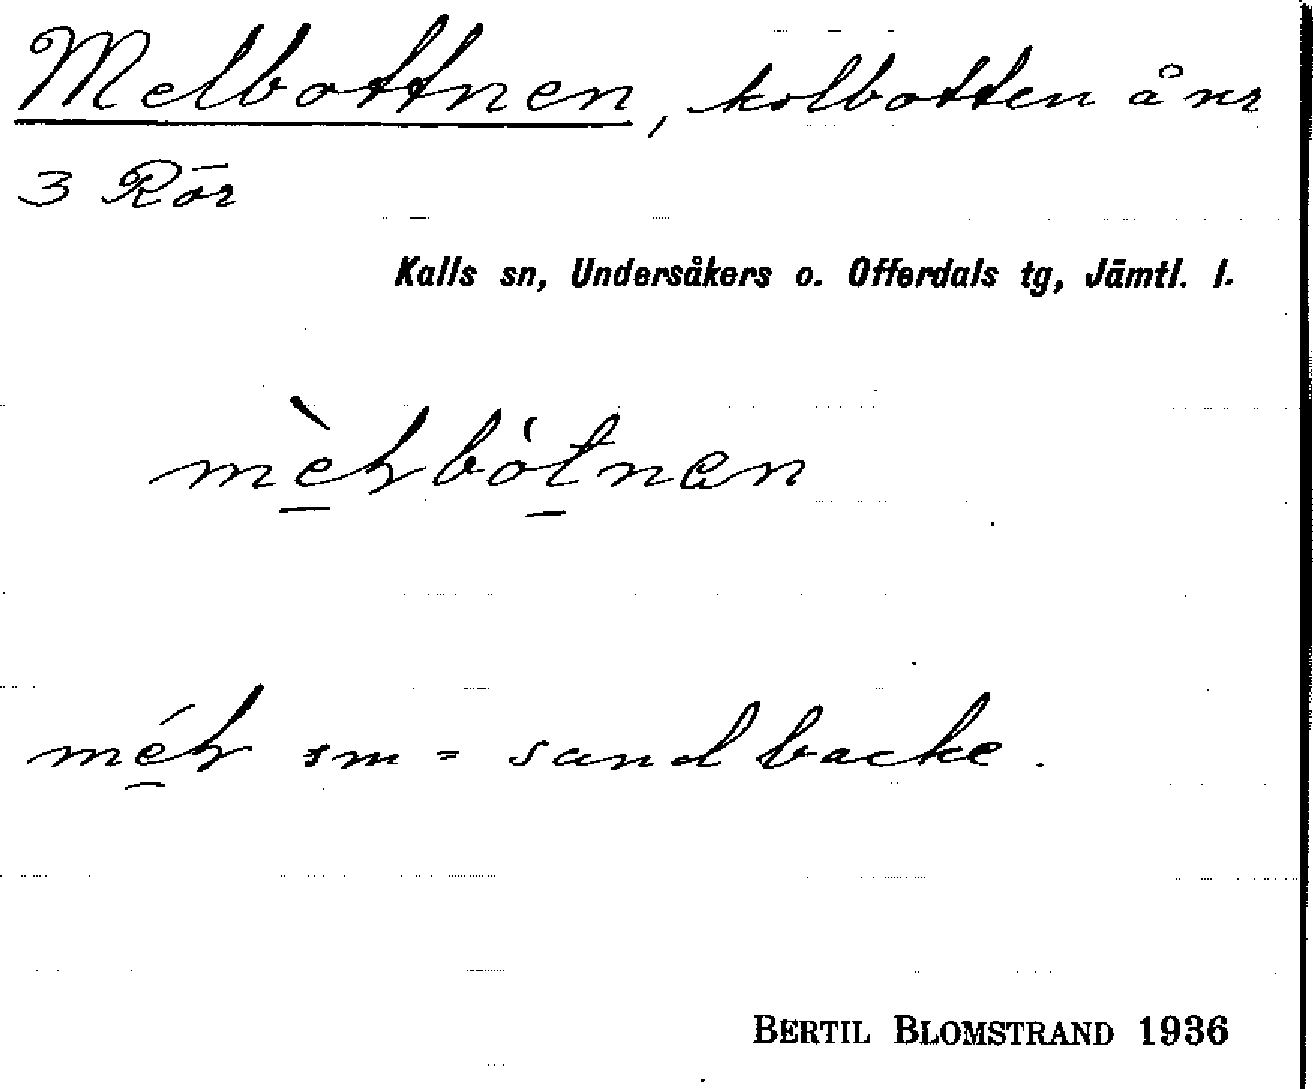 Melbottnen, kolbotten å nr
3 Rör
Kalls sn, Undersåkers o. Offerdals tg, Jämtl. l.
sm = sandbacke.
BERTIL BLOMSTRAND 1936